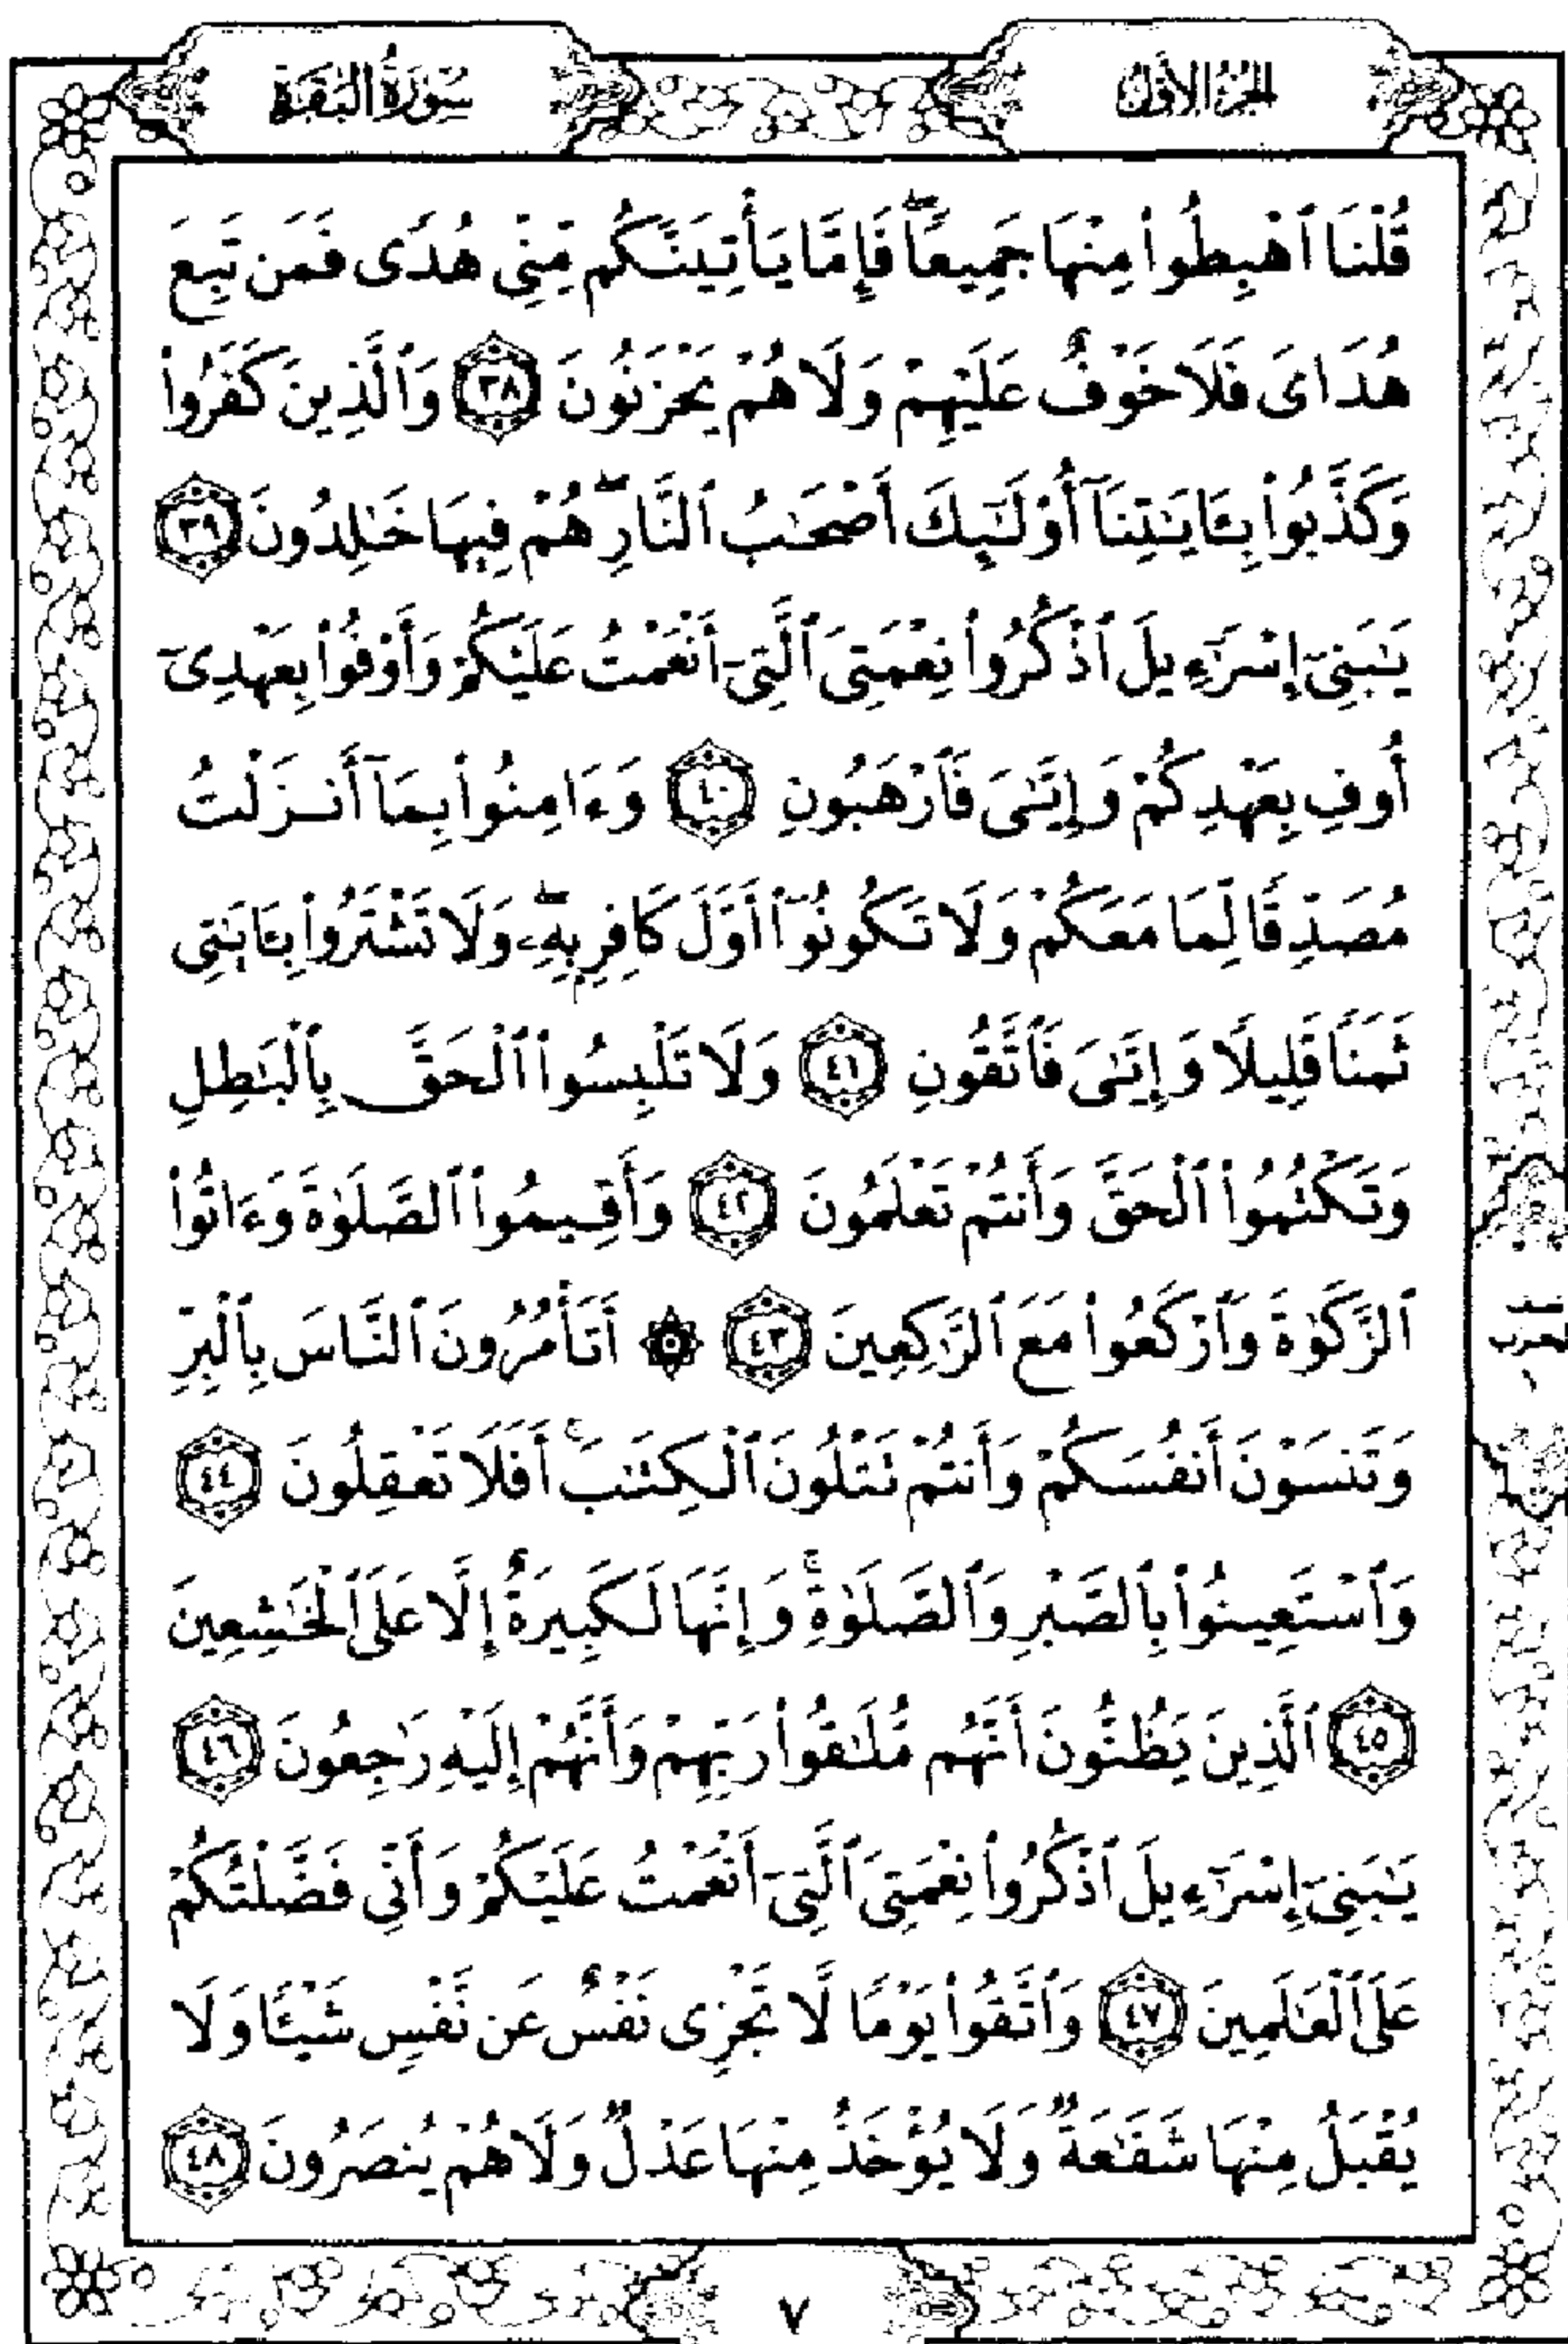 الجزء الأول
سورة البقرة
قُلْنَا ٱهْبِطُوا۟ مِنْهَا جَمِيعًاۖ فَإِمَّا يَأْتِيَنَّكُم مِّنِّى هُدًى فَمَن تَبِعَ
هُدَاىَ فَلَا خَوْفٌ عَلَيْهِمْ وَلَا هُمْ يَحْزَنُونَ ٣٨ وَٱلَّذِينَ كَفَرُوا۟
وَكَذَّبُوا۟ بِـَٔايَـٰتِنَآ أُو۟لَـٰٓئِكَ أَصْحَـٰبُ ٱلنَّارِۖ هُمْ فِيهَا خَـٰلِدُونَ ٣٩
يَـٰبَنِىٓ إِسْرَٰٓءِيلَ ٱذْكُرُوا۟ نِعْمَتِىَ ٱلَّتِىٓ أَنْعَمْتُ عَلَيْكُمْ وَأَوْفُوا۟ بِعَهْدِىٓ
أُوفِ بِعَهْدِكُمْ وَإِيَّـٰىَ فَٱرْهَبُونِ ٤٠ وَءَامِنُوا۟ بِمَآ أَنزَلْتُ
مُصَدِّقًا لِّمَا مَعَكُمْ وَلَا تَكُونُوٓا۟ أَوَّلَ كَافِرٍۭ بِهِۦۖ وَلَا تَشْتَرُوا۟ بِـَٔايَـٰتِى
ثَمَنًا قَلِيلًا وَإِيَّـٰىَ فَٱتَّقُونِ ٤١ وَلَا تَلْبِسُوا۟ ٱلْحَقَّ بِٱلْبَـٰطِلِ
وَتَكْتُمُوا۟ ٱلْحَقَّ وَأَنتُمْ تَعْلَمُونَ ٤٢ وَأَقِيمُوا۟ ٱلصَّلَوٰةَ وَءَاتُوا۟
ٱلزَّكَوٰةَ وَٱرْكَعُوا۟ مَعَ ٱلرَّٰكِعِينَ ٤٣ ۞ أَتَأْمُرُونَ ٱلنَّاسَ بِٱلْبِرِّ
وَتَنسَوْنَ أَنفُسَكُمْ وَأَنتُمْ تَتْلُونَ ٱلْكِتَـٰبَۚ أَفَلَا تَعْقِلُونَ ٤٤
وَٱسْتَعِينُوا۟ بِٱلصَّبْرِ وَٱلصَّلَوٰةِۚ وَإِنَّهَا لَكَبِيرَةٌ إِلَّا عَلَى ٱلْخَـٰشِعِينَ
٤٥ ٱلَّذِينَ يَظُنُّونَ أَنَّهُم مُّلَـٰقُوا۟ رَبِّهِمْ وَأَنَّهُمْ إِلَيْهِ رَٰجِعُونَ ٤٦
يَـٰبَنِىٓ إِسْرَٰٓءِيلَ ٱذْكُرُوا۟ نِعْمَتِىَ ٱلَّتِىٓ أَنْعَمْتُ عَلَيْكُمْ وَأَنِّى فَضَّلْتُكُمْ
عَلَى ٱلْعَـٰلَمِينَ ٤٧ وَٱتَّقُوا۟ يَوْمًا لَّا تَجْزِى نَفْسٌ عَن نَّفْسٍ شَيْـًٔا وَلَا
يُقْبَلُ مِنْهَا شَفَـٰعَةٌ وَلَا يُؤْخَذُ مِنْهَا عَدْلٌ وَلَا هُمْ يُنصَرُونَ ٤٨
٧